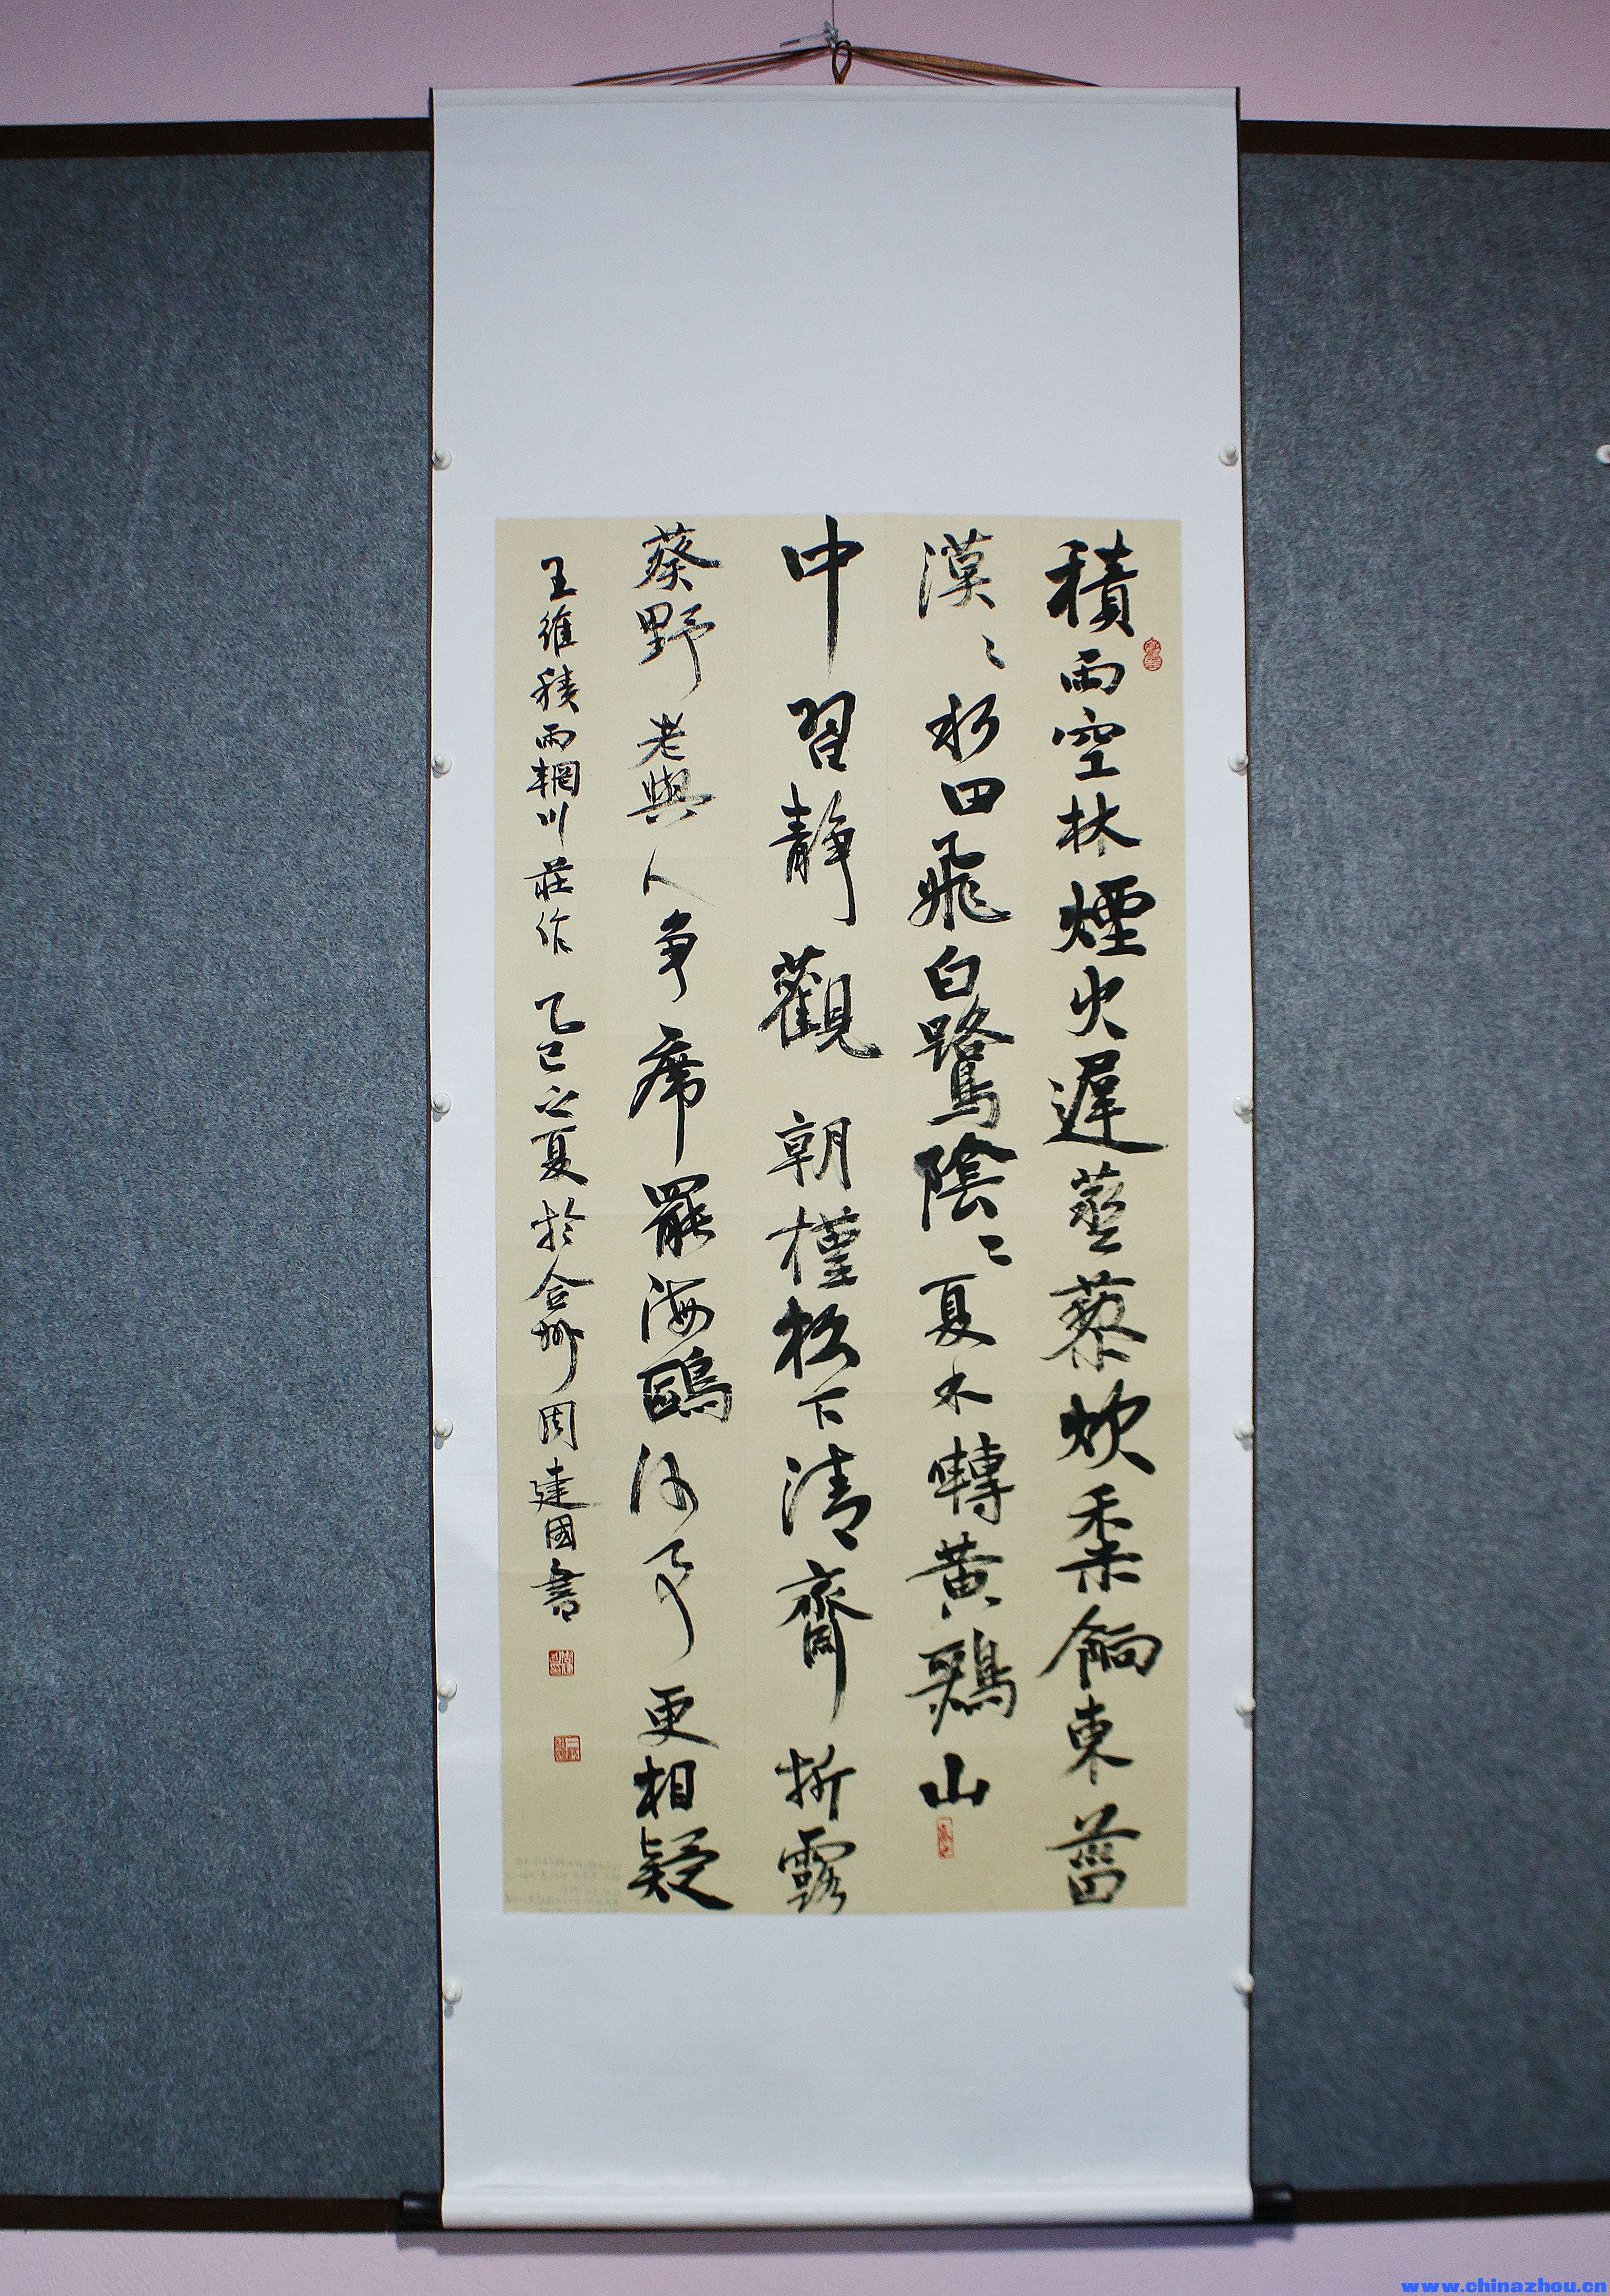 積雨空林煙火遲蒸藜炊黍餉東菑
漠〻水田飛白鷺陰〻夏木囀黃鸝山
中習靜觀朝槿松下清齋折露
葵野老與人爭席罷海鷗何事更相疑
王維積雨輞川莊作 乙巳之夏於合州周建國書
www.chinazhou.cn